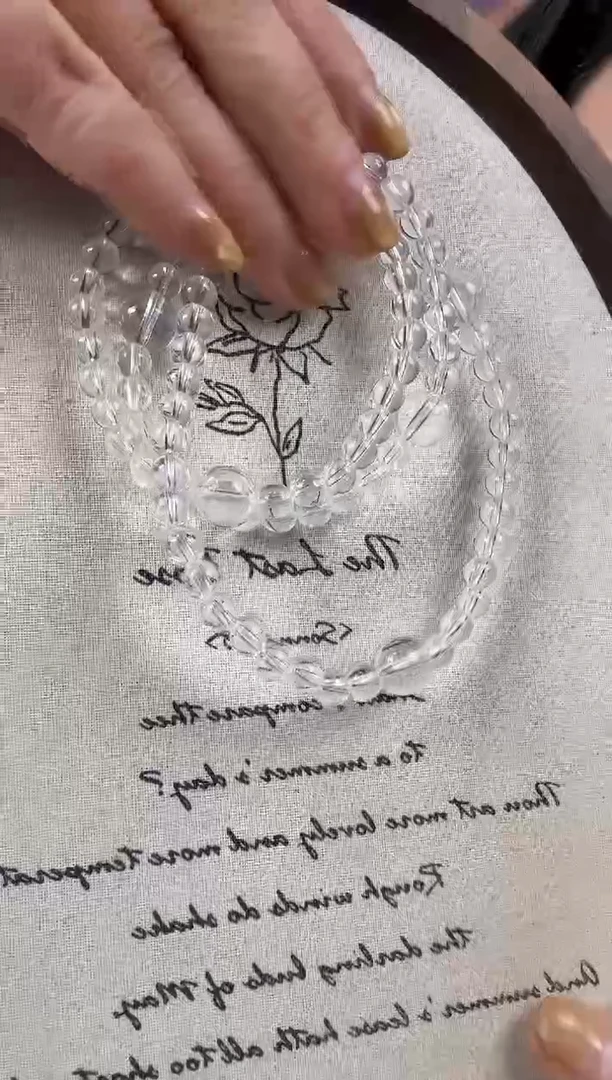 The Last
<Sonn
compare thee
to a summer's day?
Thou art more lovely and more temperat
Rough winds do shake
the darling buds of May
And summer's lease hath all too short